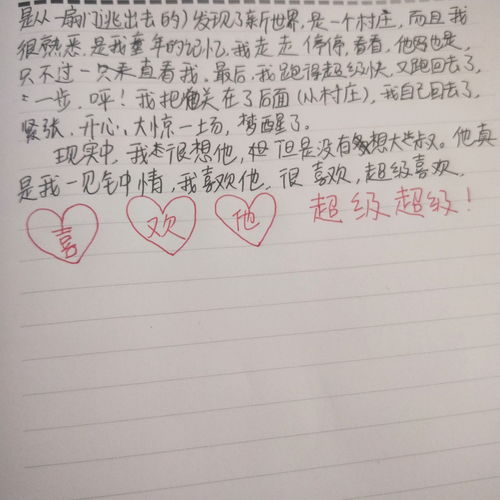 是从一扇门逃出去的)发现了新世界,是一个村庄,而且我
很熟悉,是我童年的记忆,我走走停停,看看,他也是,
只不过一只来直看我.最后,我跑得超级快,又跑回去了,
一步,呯!我把他关在了后面(从村庄),我自己回去了,
紧张,开心,大惊一场,梦醒了。
现实中,我很想他,但是没有想大叔。他真
是我一见钟情,我喜欢他,很喜欢,超级喜欢,
喜 欢 他 超级超级!